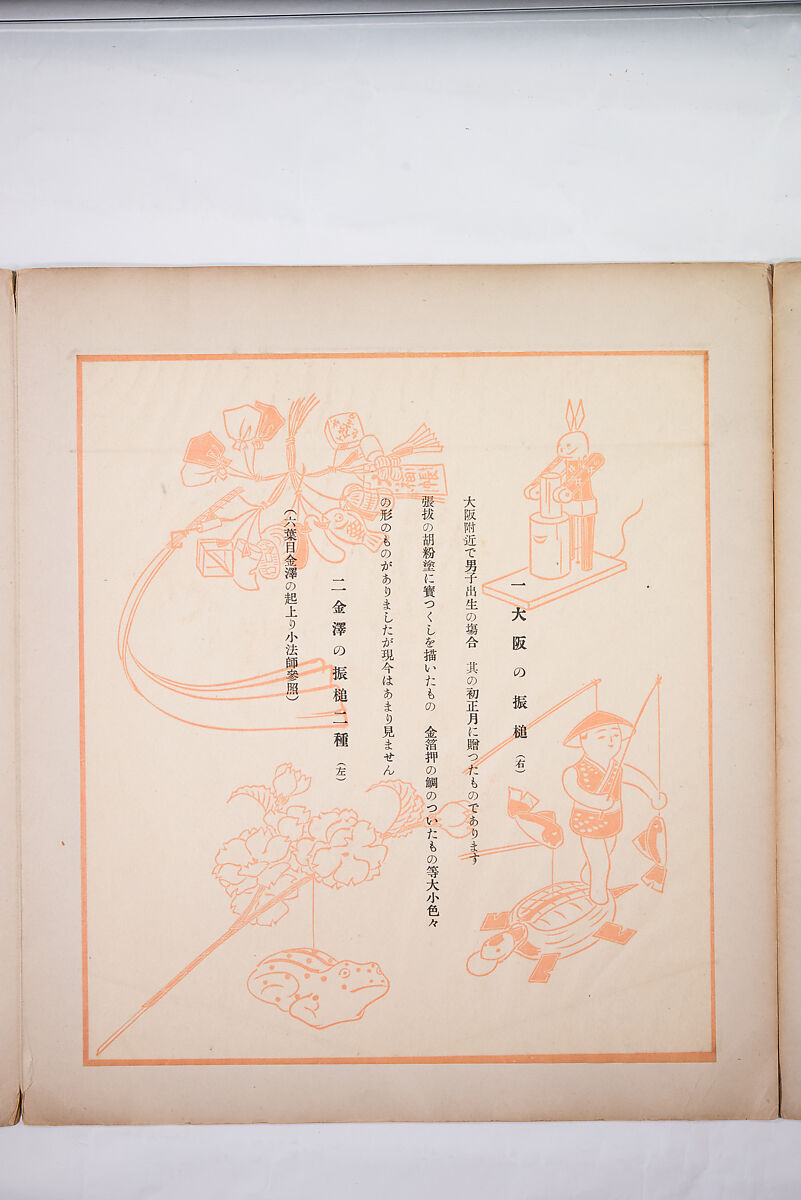 一 大阪の振槌（右）
大阪附近で男子出生の場合　其の初正月に贈つたものであります
張抜の胡粉塗に寳つくしを描いたもの　金箔押の鯛のついたもの等大小色々
の形のものがありましたが現今はあまり見ません
二 金澤の振槌二種（左）
（六葉目金澤の起上り小法師參照）